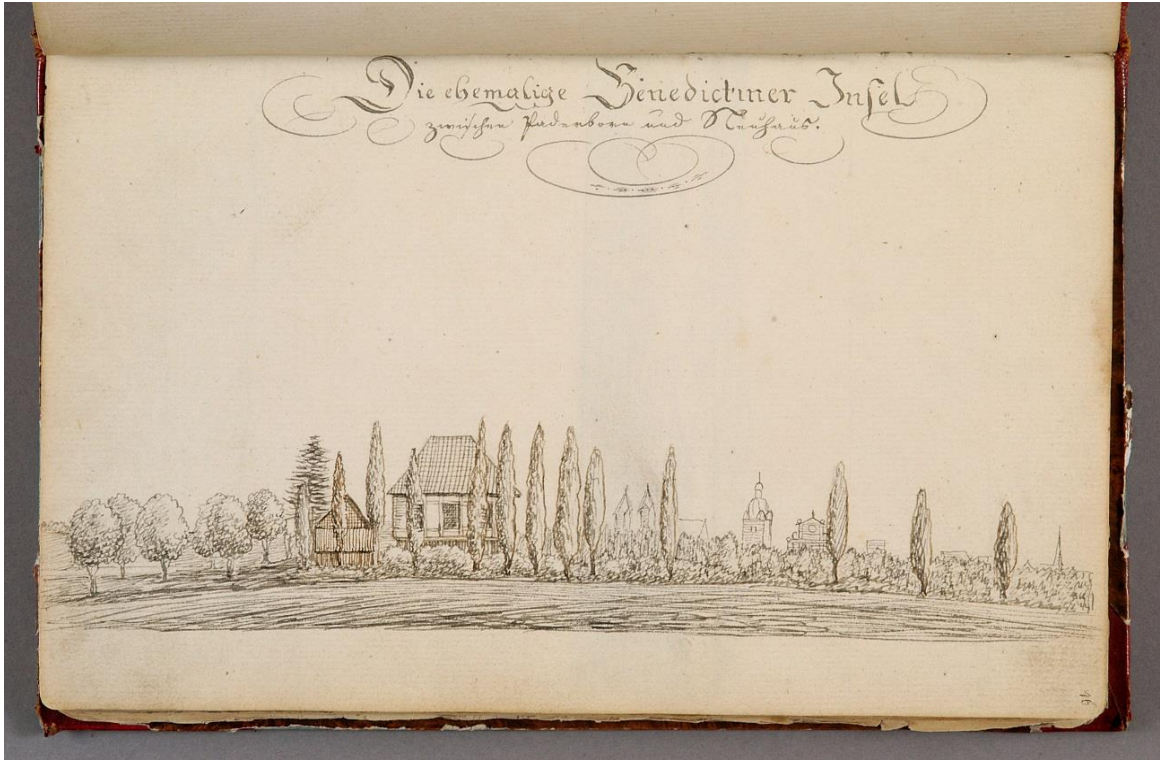 Die ehemalige Benedictiner Insel
zwischen Paderborn und Neuhaus.
16